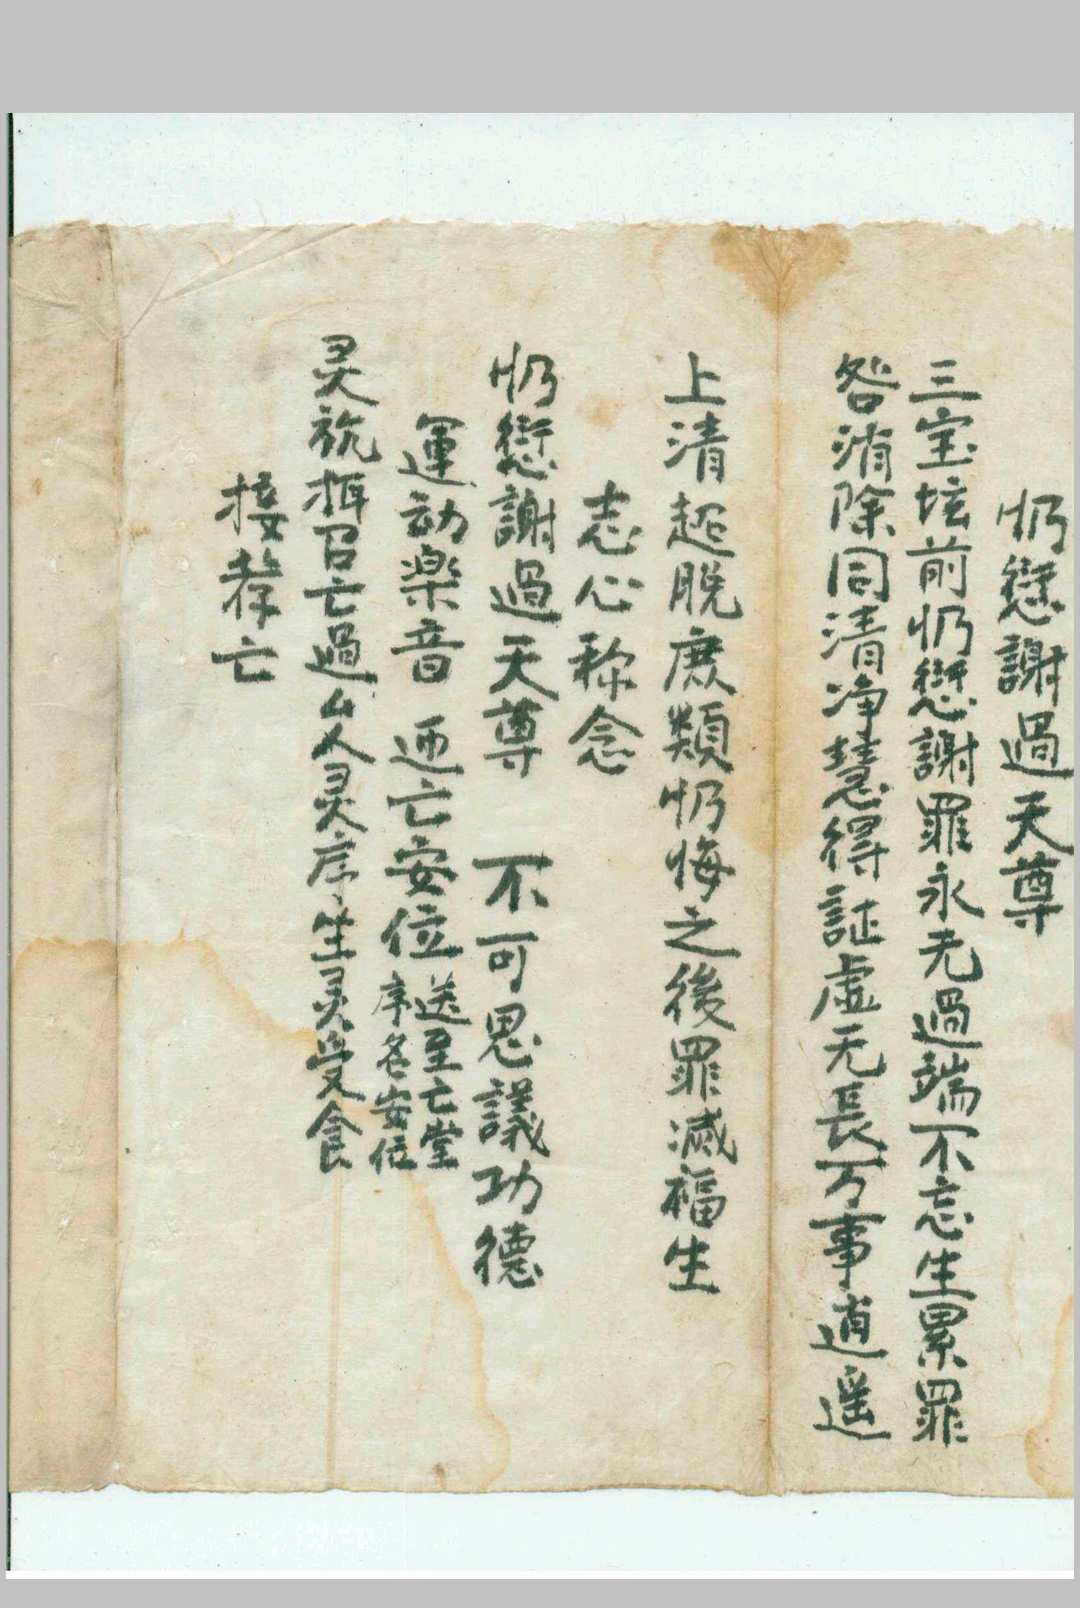 忉愆謝過天尊
三宝坛前忉愆謝罪永无過端不忘生累罪
咎消除同清净慧得証虚无長万事逍遥
上清起脱庶類忉悔之後罪滅福生
志心称念
忉愆謝過天尊　不可思議功德
運动楽音　迊亡安位 送至亡堂
序各安位
灵 召亡過 灵序生灵受食
接 亡